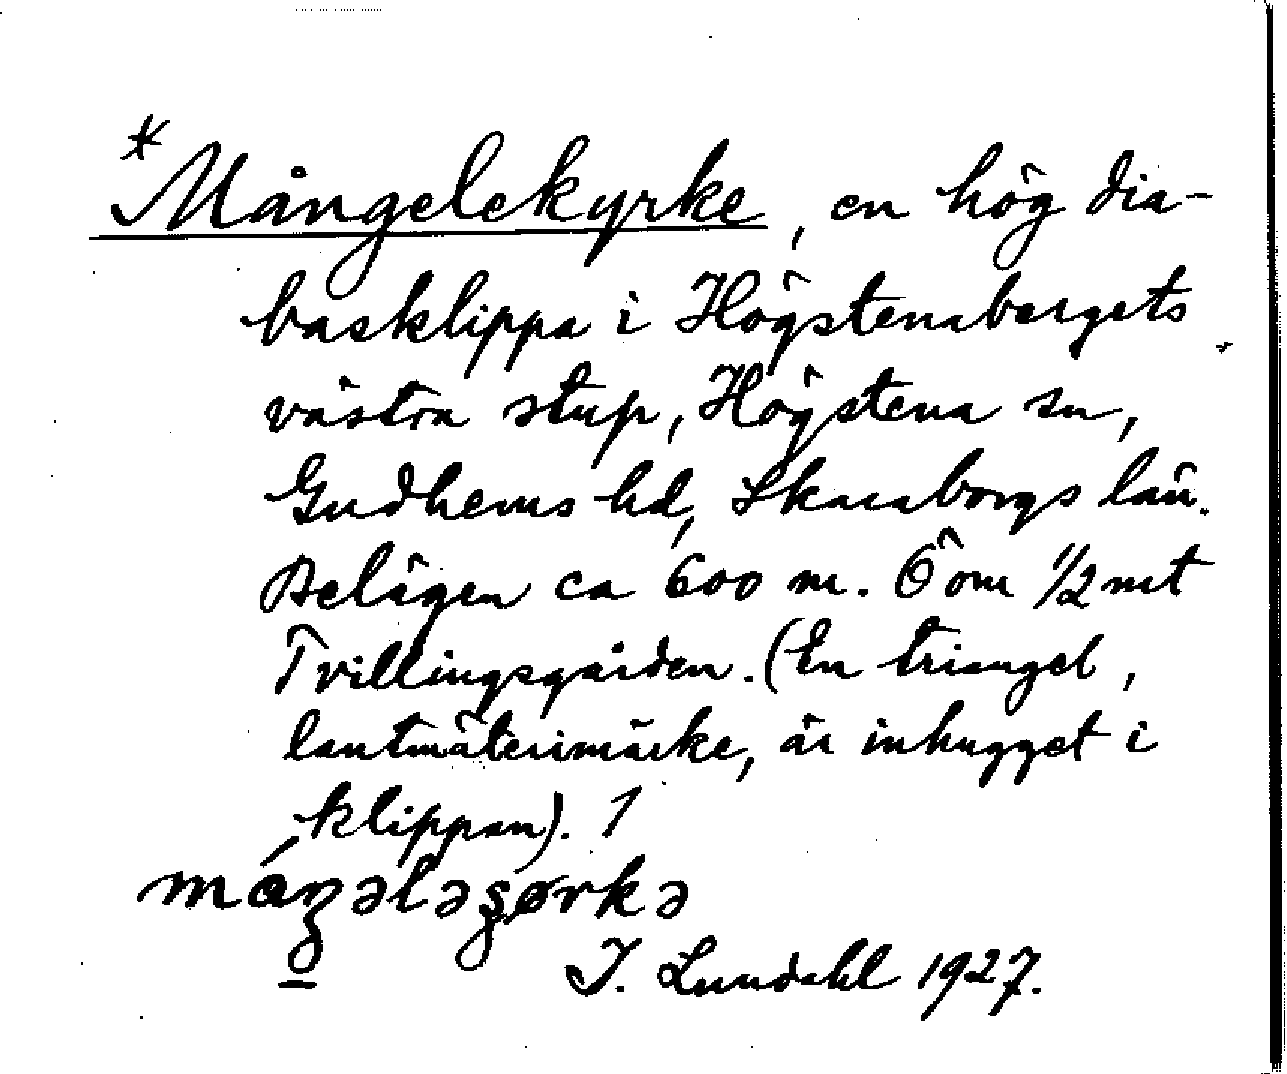 *Mångelekyrke, en hög dia-
basklippa i Högstenabergets
västra stup, Högstena sn,
Gudhems hd, Skaraborgs län.
Belägen ca 600 m. Ö om 1/2 mt
Tvillingsgården. (En triangel,
lantmäterimärke, är inhugget i
klippan). 1
I. Lundahl 1927.